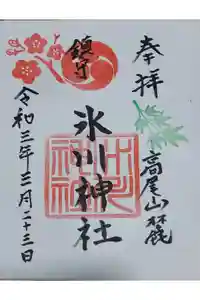 奉拝
高尾山麓
鎮守
氷川神社
令和三年三月二十三日